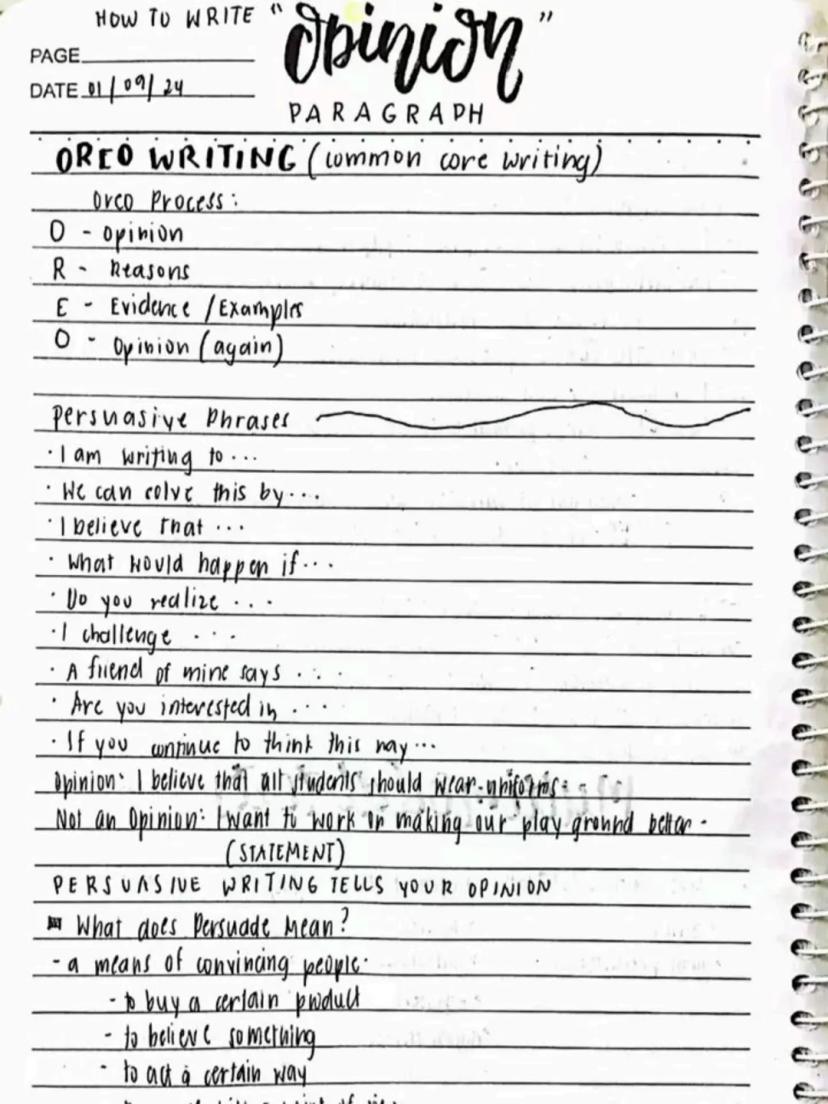 HOW TO WRITE "Opinion"
PAGE
DATE 01/09/24
PARAGRAPH
OREO WRITING (common core writing)
Oreo Process:
O - Opinion
R - Reasons
E - Evidence /Examples
O - Opinion (again)
Persuasive Phrases
· I am writing to...
· We can solve this by...
· I believe that ...
· What would happen if...
· Do you realize ...
· I challenge ...
· A friend of mine says ...
· Are you interested in ...
· If you continue to think this way...
Opinion: I believe that all students should wear uniforms.
Not an Opinion: I want to work on making our play ground better.
(STATEMENT)
PERSUASIVE WRITING TELLS YOUR OPINION
What does Persuade Mean?
- a means of convincing people.
- to buy a certain product
- to believe something
- to act a certain way